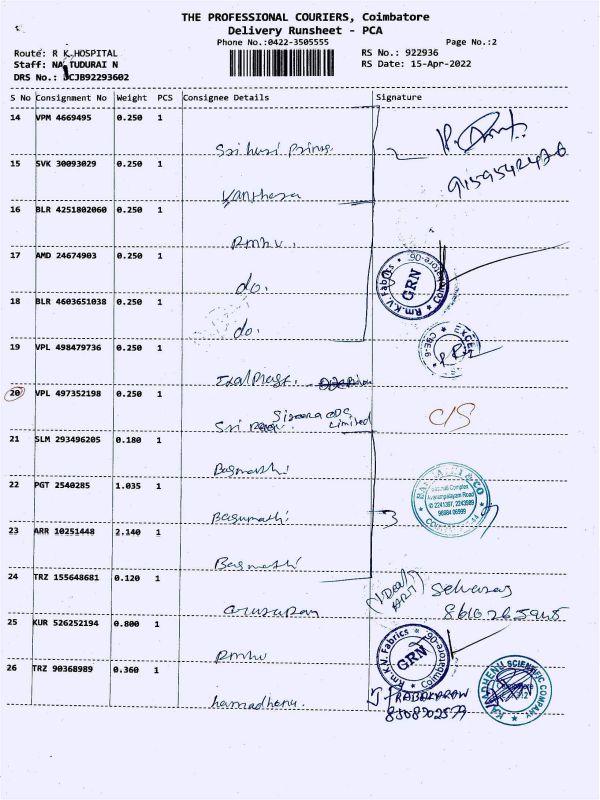 THE PROFESSIONAL COURIERS, Coimbatore
Delivery Runsheet - PCA
Phone No.:0422-3505555
Page No.:2
Route: R K HOSPITAL
RS No.: 922936
Staff: NA TUDURAI N
RS Date: 15-Apr-2022
DRS No.: CJB92293602
S No Consignment No Weight PCS Consignee Details Signature
14 VPM 4669495 0.250 1
15 SVK 30093029 0.250 1
9159542476
16 BLR 4251802060 0.250 1
Rmkv.
17 AMD 24674903 0.250 1 do.
Rm.K.V. Fabrics Coimbatore-06
GRN
18 BLR 4603651038 0.250 1 do.
19 VPL 498479736 0.250 1
CBE-6
20 VPL 497352198 0.250 1 Limited
C/S
21 SLM 293496205 0.180 1 Basmathi
22 PGT 2540285 1.035 1 Basumathi
Avarampalayam Road
23 ARR 10251448 2.140 1 Basmathi
3
24 TRZ 155648681 0.120 1
25 KUR 526252194 0.800 1 Rmkv
Rm.K.V. Fabrics Coimbatore-06
GRN
26 TRZ 90368989 0.360 1 kamadhenu.
J PRABAKARAN
8508702579
KAMADHENU SCIENTIFIC COMPANY